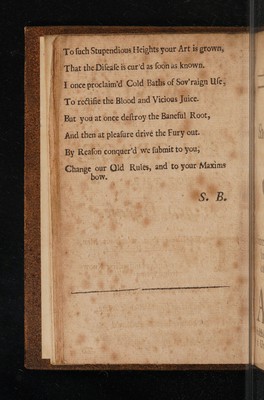 To ſuch Stupendious Heights your Art is grown,
That the Diſeaſe is cur'd as ſoon as known.
I once proclaim'd Cold Baths of Sov'raign Uſe,
To rectifie the Blood and Vicious Juice.
But you at once deſtroy the Baneful Root,
And then at pleaſure drive the Fury out.
By Reaſon conquer'd we ſubmit to you,
Change our Old Rules, and to your Maxims
bow.
S. B.